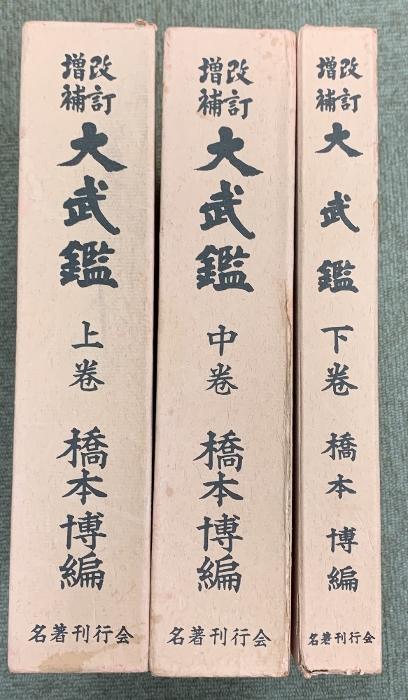 改訂
増補
大武鑑
上巻
橋本博編
名著刊行会
改訂
増補
大武鑑
中巻
橋本博編
名著刊行会
改訂
増補
大武鑑
下巻
橋本博編
名著刊行会